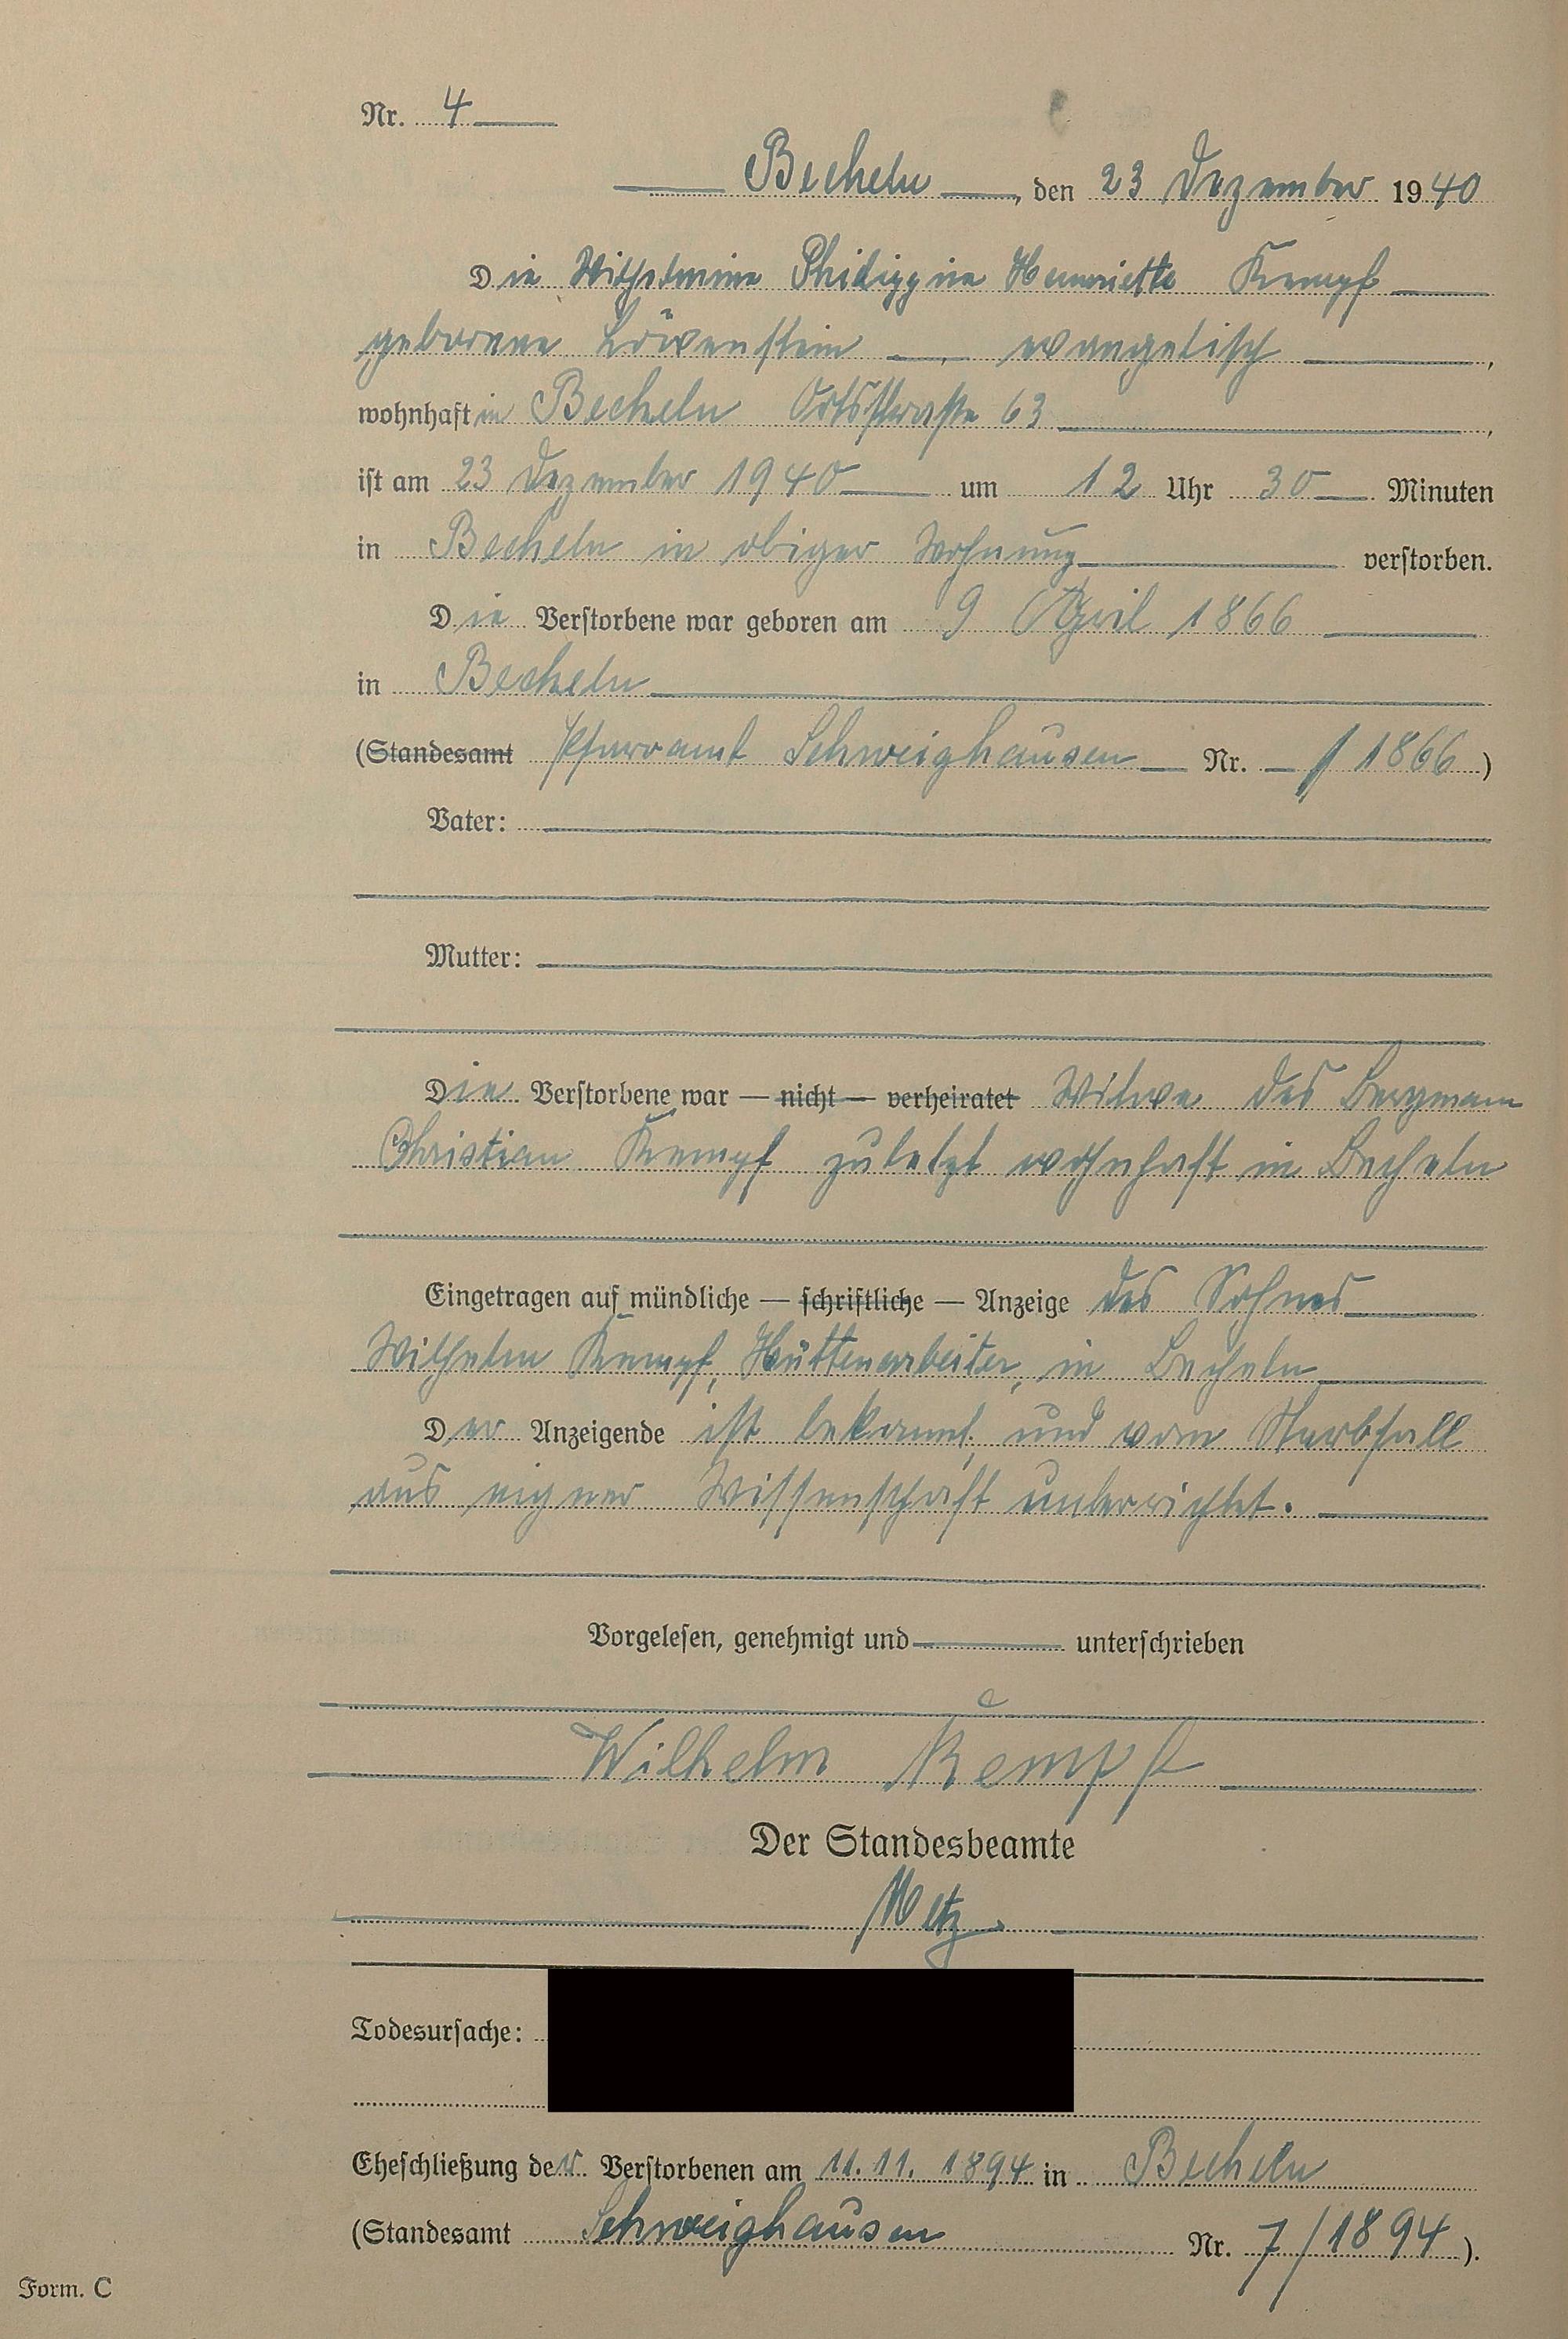 Nr. 4
Becheln, den 23 Dezember 1940
Die Wilhelmine Philippine Henriette Kempf
geborene Löwenstein evangelisch,
wohnhaft in Becheln Ortsstraße 63,
ist am 23 Dezember 1940 um 12 Uhr 30 Minuten
in Becheln in obiger Wohnung verstorben.
Die Verstorbene war geboren am 9 April 1866
in Becheln
(Standesamt Pfarramt Schweighausen Nr. — / 1866)
Vater:
Mutter:
Die Verstorbene war — nicht — verheiratet Witwe des Bergmann
Christian Kempf zuletzt wohnhaft in Becheln
Eingetragen auf mündliche — schriftliche — Anzeige des Sohnes
Wilhelm Kempf, Hüttenarbeiter, in Becheln
Der Anzeigende ist bekannt, und vom Sterbfall
aus eigner Wissenschaft unterrichtet.
Vorgelesen, genehmigt und unterschrieben
Wilhelm Kempf
Der Standesbeamte
Metz
Todesursache:
Eheschließung der Verstorbenen am 11.11.1894 in Becheln
(Standesamt Schweighausen Nr. 7/1894).
Form. C